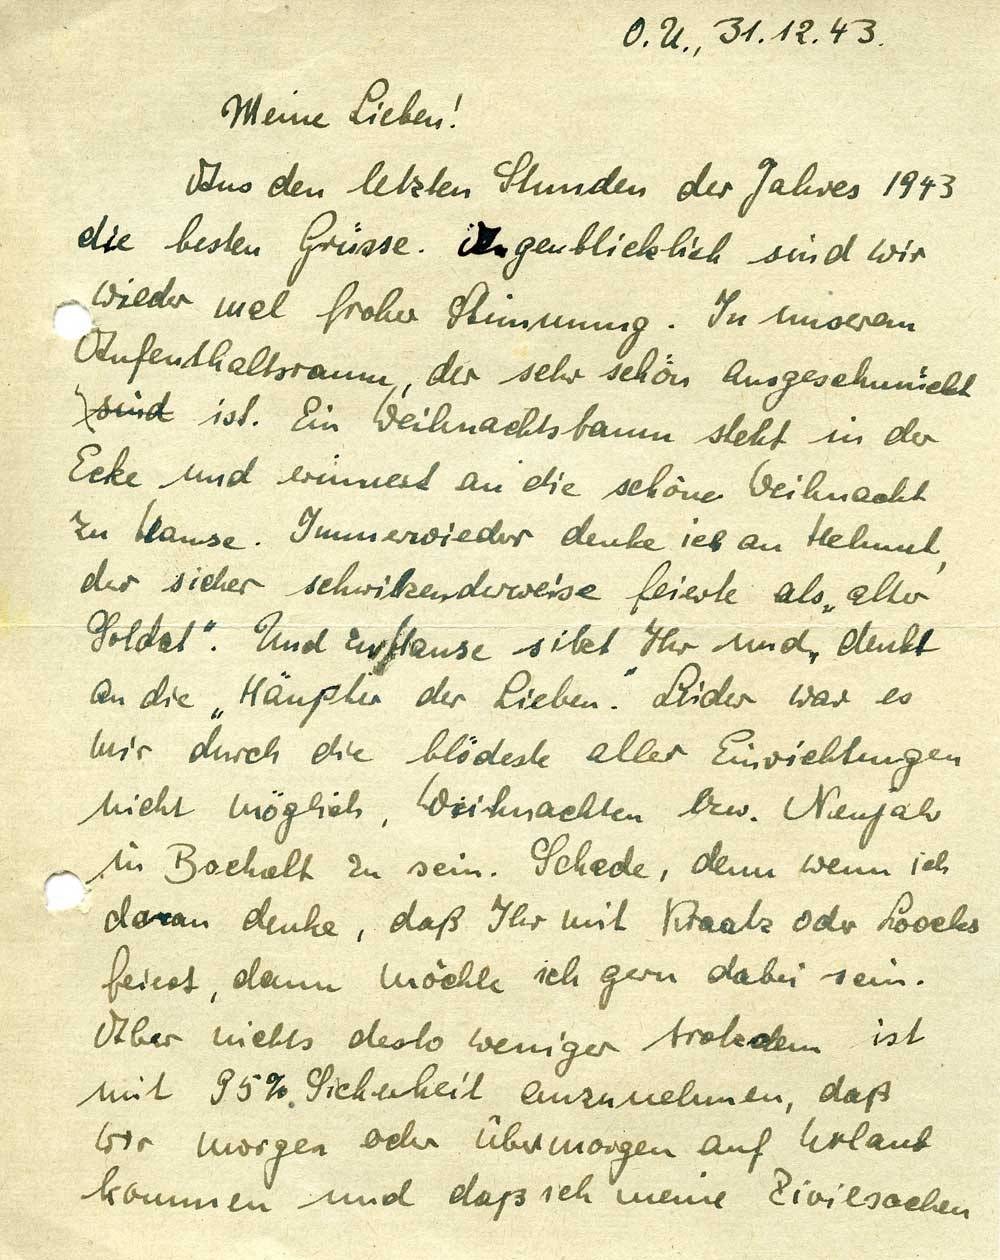 O.U., 31.12.43.
Meine Lieben!
Aus den letzten Stunden der Jahres 1943
die besten Grüsse. Augenblicklich sind wir
wieder mal froher Stimmung. In unseren
Aufenthaltsraum, der sehr schön ausgeschmückt
sind ist. Ein Weihnachtsbaum steht in der
Ecke und erinnert an die schöne Weihnacht
zu Hause. Immerwieder denke ich an Helmut,
der sicher schwitzenderweise feierte als „alter
Soldat". Und zu Hause sitzt Ihr und „denkt
an die „Häupter der Lieben." Leider war es
mir durch die blödeste aller Einrichtungen
nicht möglich, Weihnachten bzw. Neujahr
in Bocholt zu sein. Schade, denn wenn ich
daran denke, daß Ihr mit Kraatz oder Loocks
feiert, dann möchte ich gern dabei sein.
Aber nichts desto weniger trotzdem ist
mit 95% Sicherheit anzunehmen, daß
wir morgen oder übermorgen auf Urlaub
kommen und daß ich meine Zivilsachen